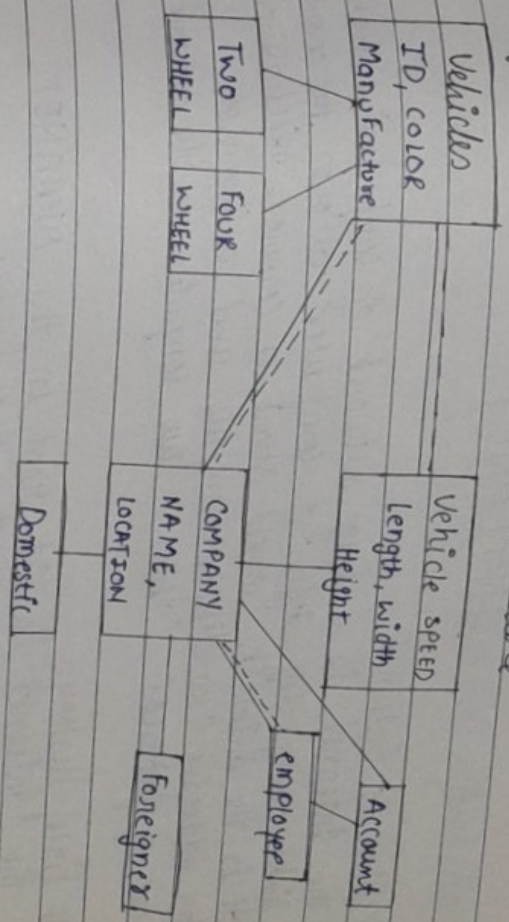 Vehicles
ID, COLOR
Manufacture
Two
WHEEL
FOUR
WHEEL
Vehicle SPEED
Length, width
Height
COMPANY
NAME,
LOCATION
Account
employee
Foreigner
Domestic